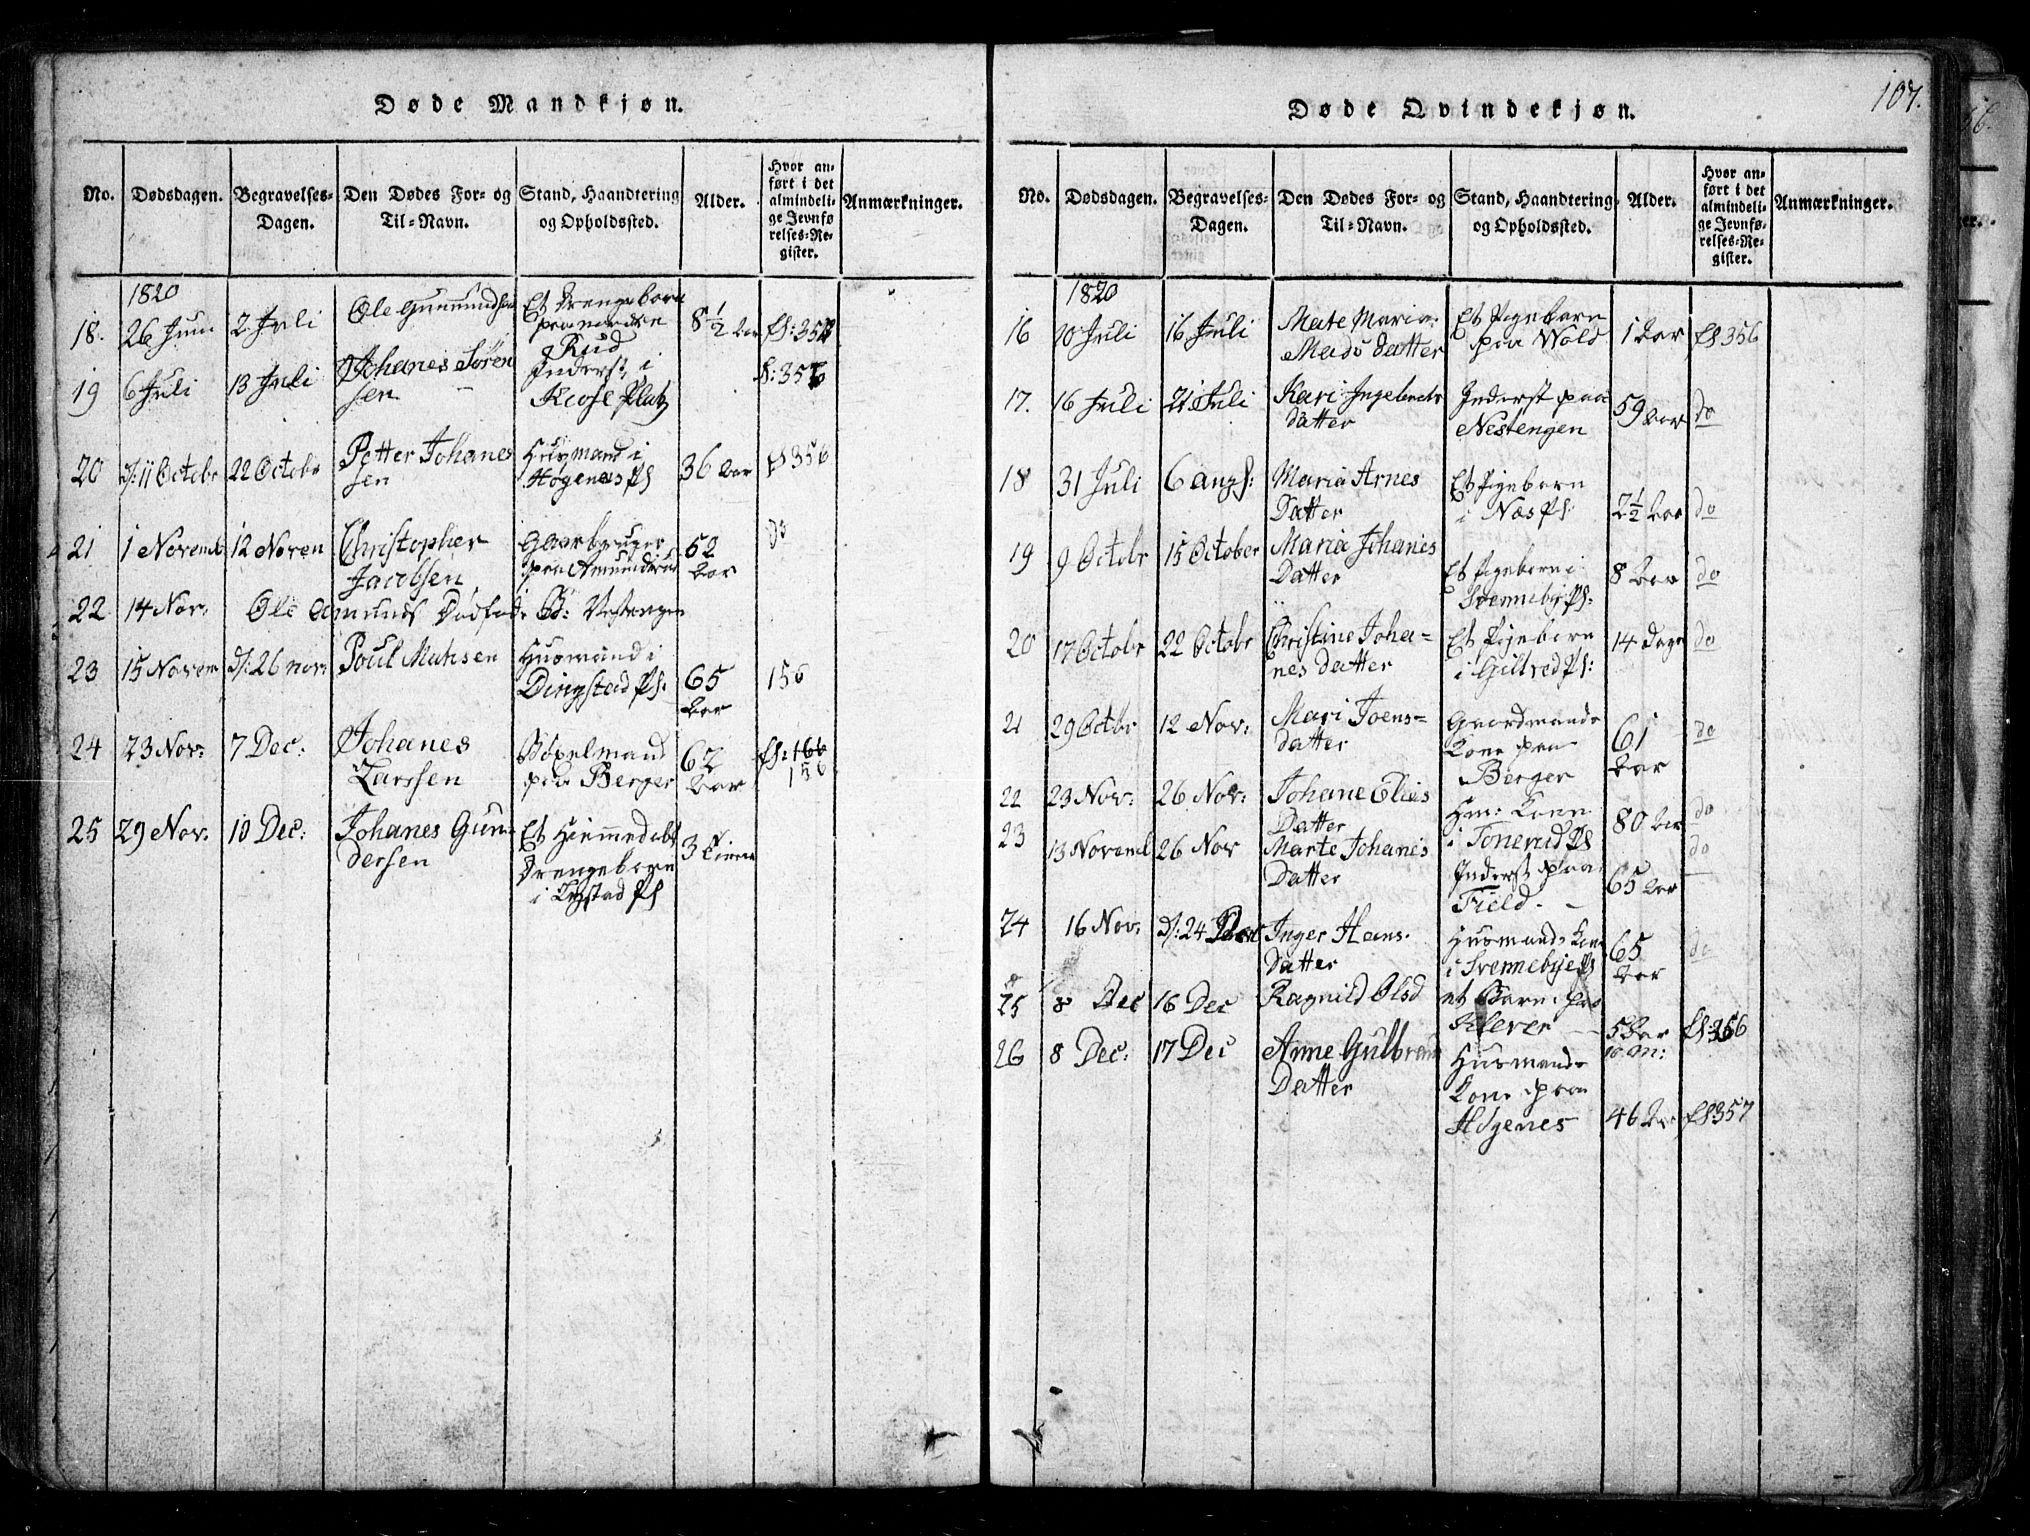 107.
Døde Mandkjøn.
No. Dødsdagen. Begravelses-Dagen. Den Dødes For- og Til-Navn. Stand, Haandtering og Opholdssted. Alder. Hvor anført i det almindelige Jevnførelses-Register. Anmærkninger.
1820
18. 26 Juni 2 Juli Ole Gunnundsen Et Drengebarn paa nordre Rud 8½ Aar
19 6 Juli 13 Juli Johanes Søren
sen Inderst i
Kiose Platz
20 d: 11 Octobr 22 Octobr Petter Johanes
sen Huusmand i
Høgenæs Pl 36 Aar fl 356
21 1 Novemb 12 Noven Christopher
Jacobsen Gaarbruger
paa Amunderud 52
Aar do
22 14 Nov: Ole Amunds Dødfød: Vestengen
23 15 Novem d: 26 nov: Poul Matisen Husmand i
Dingstad Pl: 65
Aar 156
24 23 Nov: 7 Dec: Johanes
Larssen
paa Berger 62
Aar
156
25 29 Nov. 10 Dec: Johanes Gun-
dersen Et Hiemmedøbt
Drengebarn
i Lystad Pl 3 Timer
Døde Qvindekjøn.
No. Dødsdagen. Begravelses-Dagen. Den Dødes For- og Til-Navn. Stand, Haandtering og Opholdssted. Alder. Hvor anført i det almindelige Jevnførelses-Register. Anmærkninger.
1820
16 10 Juli 16 Juli Mate Maria
Mads datter Et Pigebarn
paa Wold 1 Aar fl 356
17. 16 Juli 21 Juli Kari Ingebrets
datter Inderst paa
Nestengen 59 Aar do
18 31 Juli 6 augs: Maria Arnes
Datter Et Pigebarn
i Næs Pl: 2½ Aar do
19 9 Octobr 15 October Maria Johanes
Datter Et Pigebarn i
Svennebye Pl: 8 Aar do
20 17 Octobr 22 Octobr Christine Joha-
nes datter Et Pigebarn
i Gullved Pl: 14 Dage do
21 29 Octbr 12 Nov: Mari Joens-
datter Gaardmands
Kone paa
Berger 61
Aar do
22 23 Nov: 26 Nov: Johane Elias
Datter Hm: Kone
i Tonerud Pl 80 Aar do
23 13 Novemb 26 Nov Marte Johanes
Datter Inderst paa
Field. 65 Aar do
24 16 Nov: d: 24 Inger Hans
Datter Husmands Kone
i Svennebye Pl 65
Aar do
25 8 Dec 16 Dec Ragnild Olsd et Barn paa
Klever 5 Aar
10 M: fl: 356
26 8 Dec: 17 Dec Anne Gulbrands
Datter Husmands
Kone paa
Høgenes 46 Aar fl 357